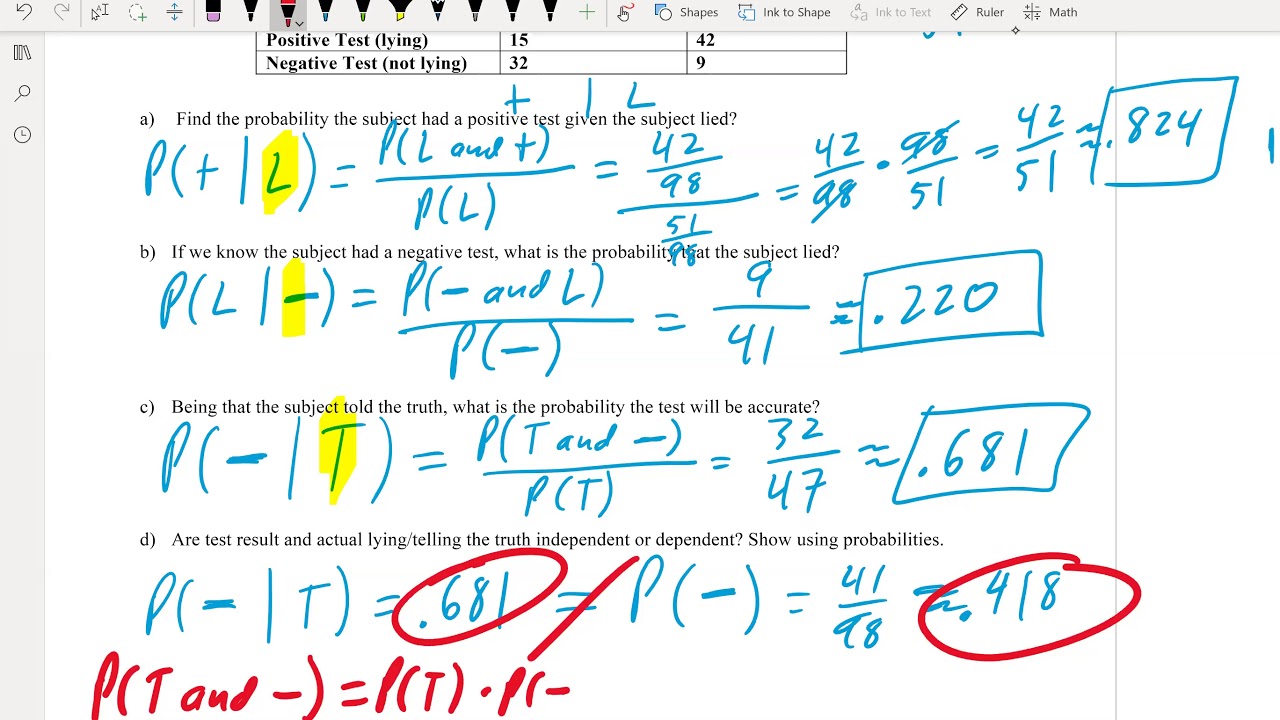 Shapes Ink to Shape Ink to Text Ruler Math
Positive Test (lying) 15 42
Negative Test (not lying) 32 9
+ | L
a) Find the probability the subject had a positive test given the subject lied?
P(+ | L) = P(L and +) / P(L) = 42/98 / 51/98 = 42/98 · 98/51 = 42/51 ≈ .824
b) If we know the subject had a negative test, what is the probability that the subject lied?
P(L | −) = P(− and L) / P(−) = 9/41 ≈ .220
c) Being that the subject told the truth, what is the probability the test will be accurate?
P(− | T) = P(T and −) / P(T) = 32/47 ≈ .681
d) Are test result and actual lying/telling the truth independent or dependent? Show using probabilities.
P(− | T) = .681 ≠ P(−) = 41/98 ≈ .418
P(T and −) = P(T) · P(−